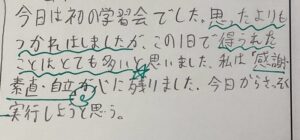 今日は初の学習会でした。思ったよりも
つかれはしましたが、この1日で得られた
ことはとても多いと思いました。私は「感謝
素直・自立」が心に残りました。今日からさっそく
実行しようと思う。